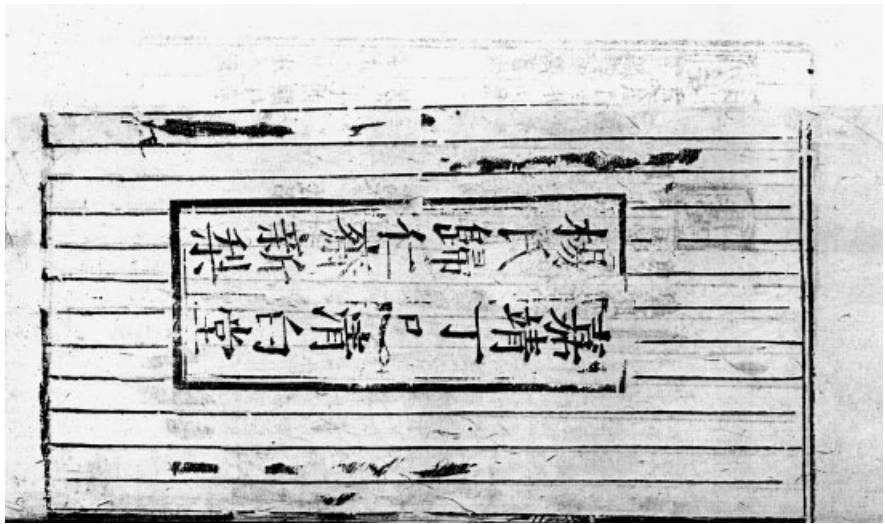 嘉靖丁巳清白堂
楊氏歸仁齋新刊